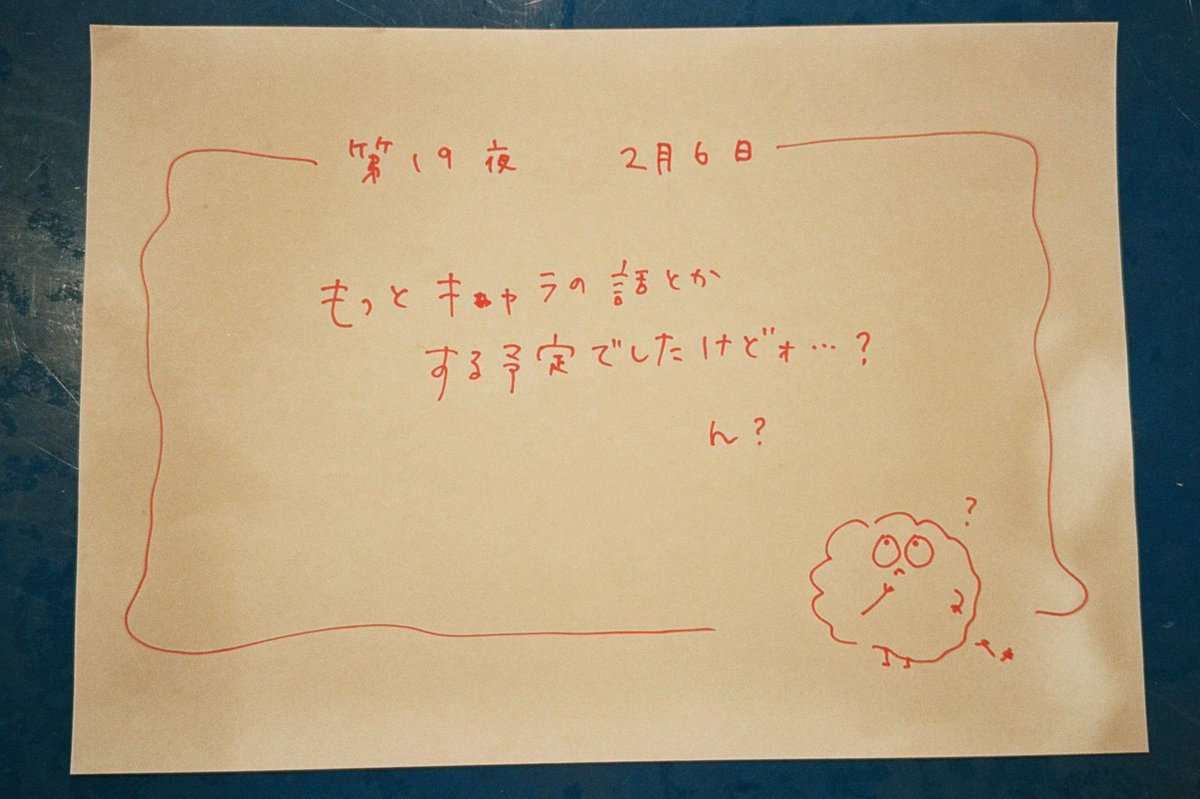 第19夜 2月6日
もっとキャラの話とか
する予定でしたけどォ…?
ん?
?